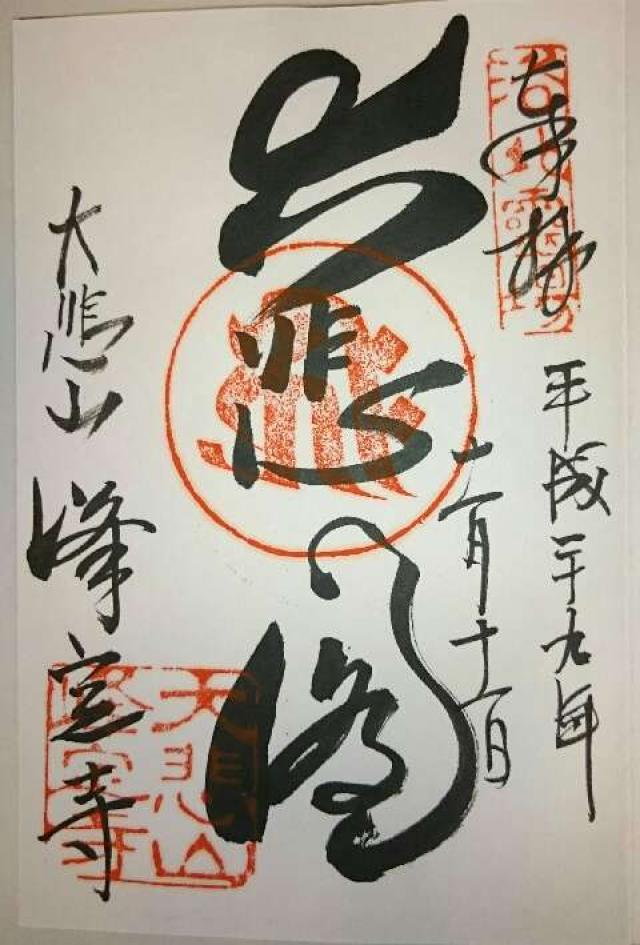 奉拝
平成二十九年
十一月十一日
大悲閣
大悲山 峰定寺
大悲山
峰定寺